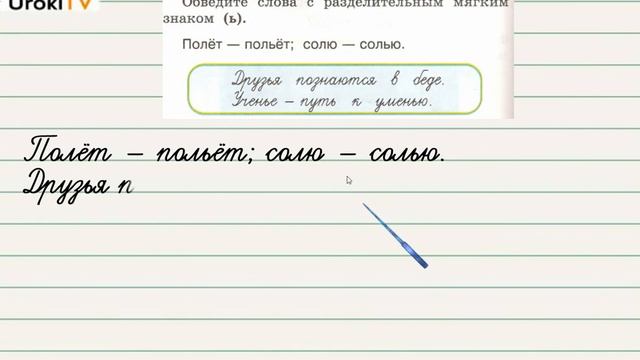 UrokiTV
Обведите слова с разделительным мягким
знаком (ь).
Полёт — польёт; солю — солью.
Друзья познаются в беде.
Ученье – путь к уменью.
Полёт – польёт; солю – солью.
Друзья п